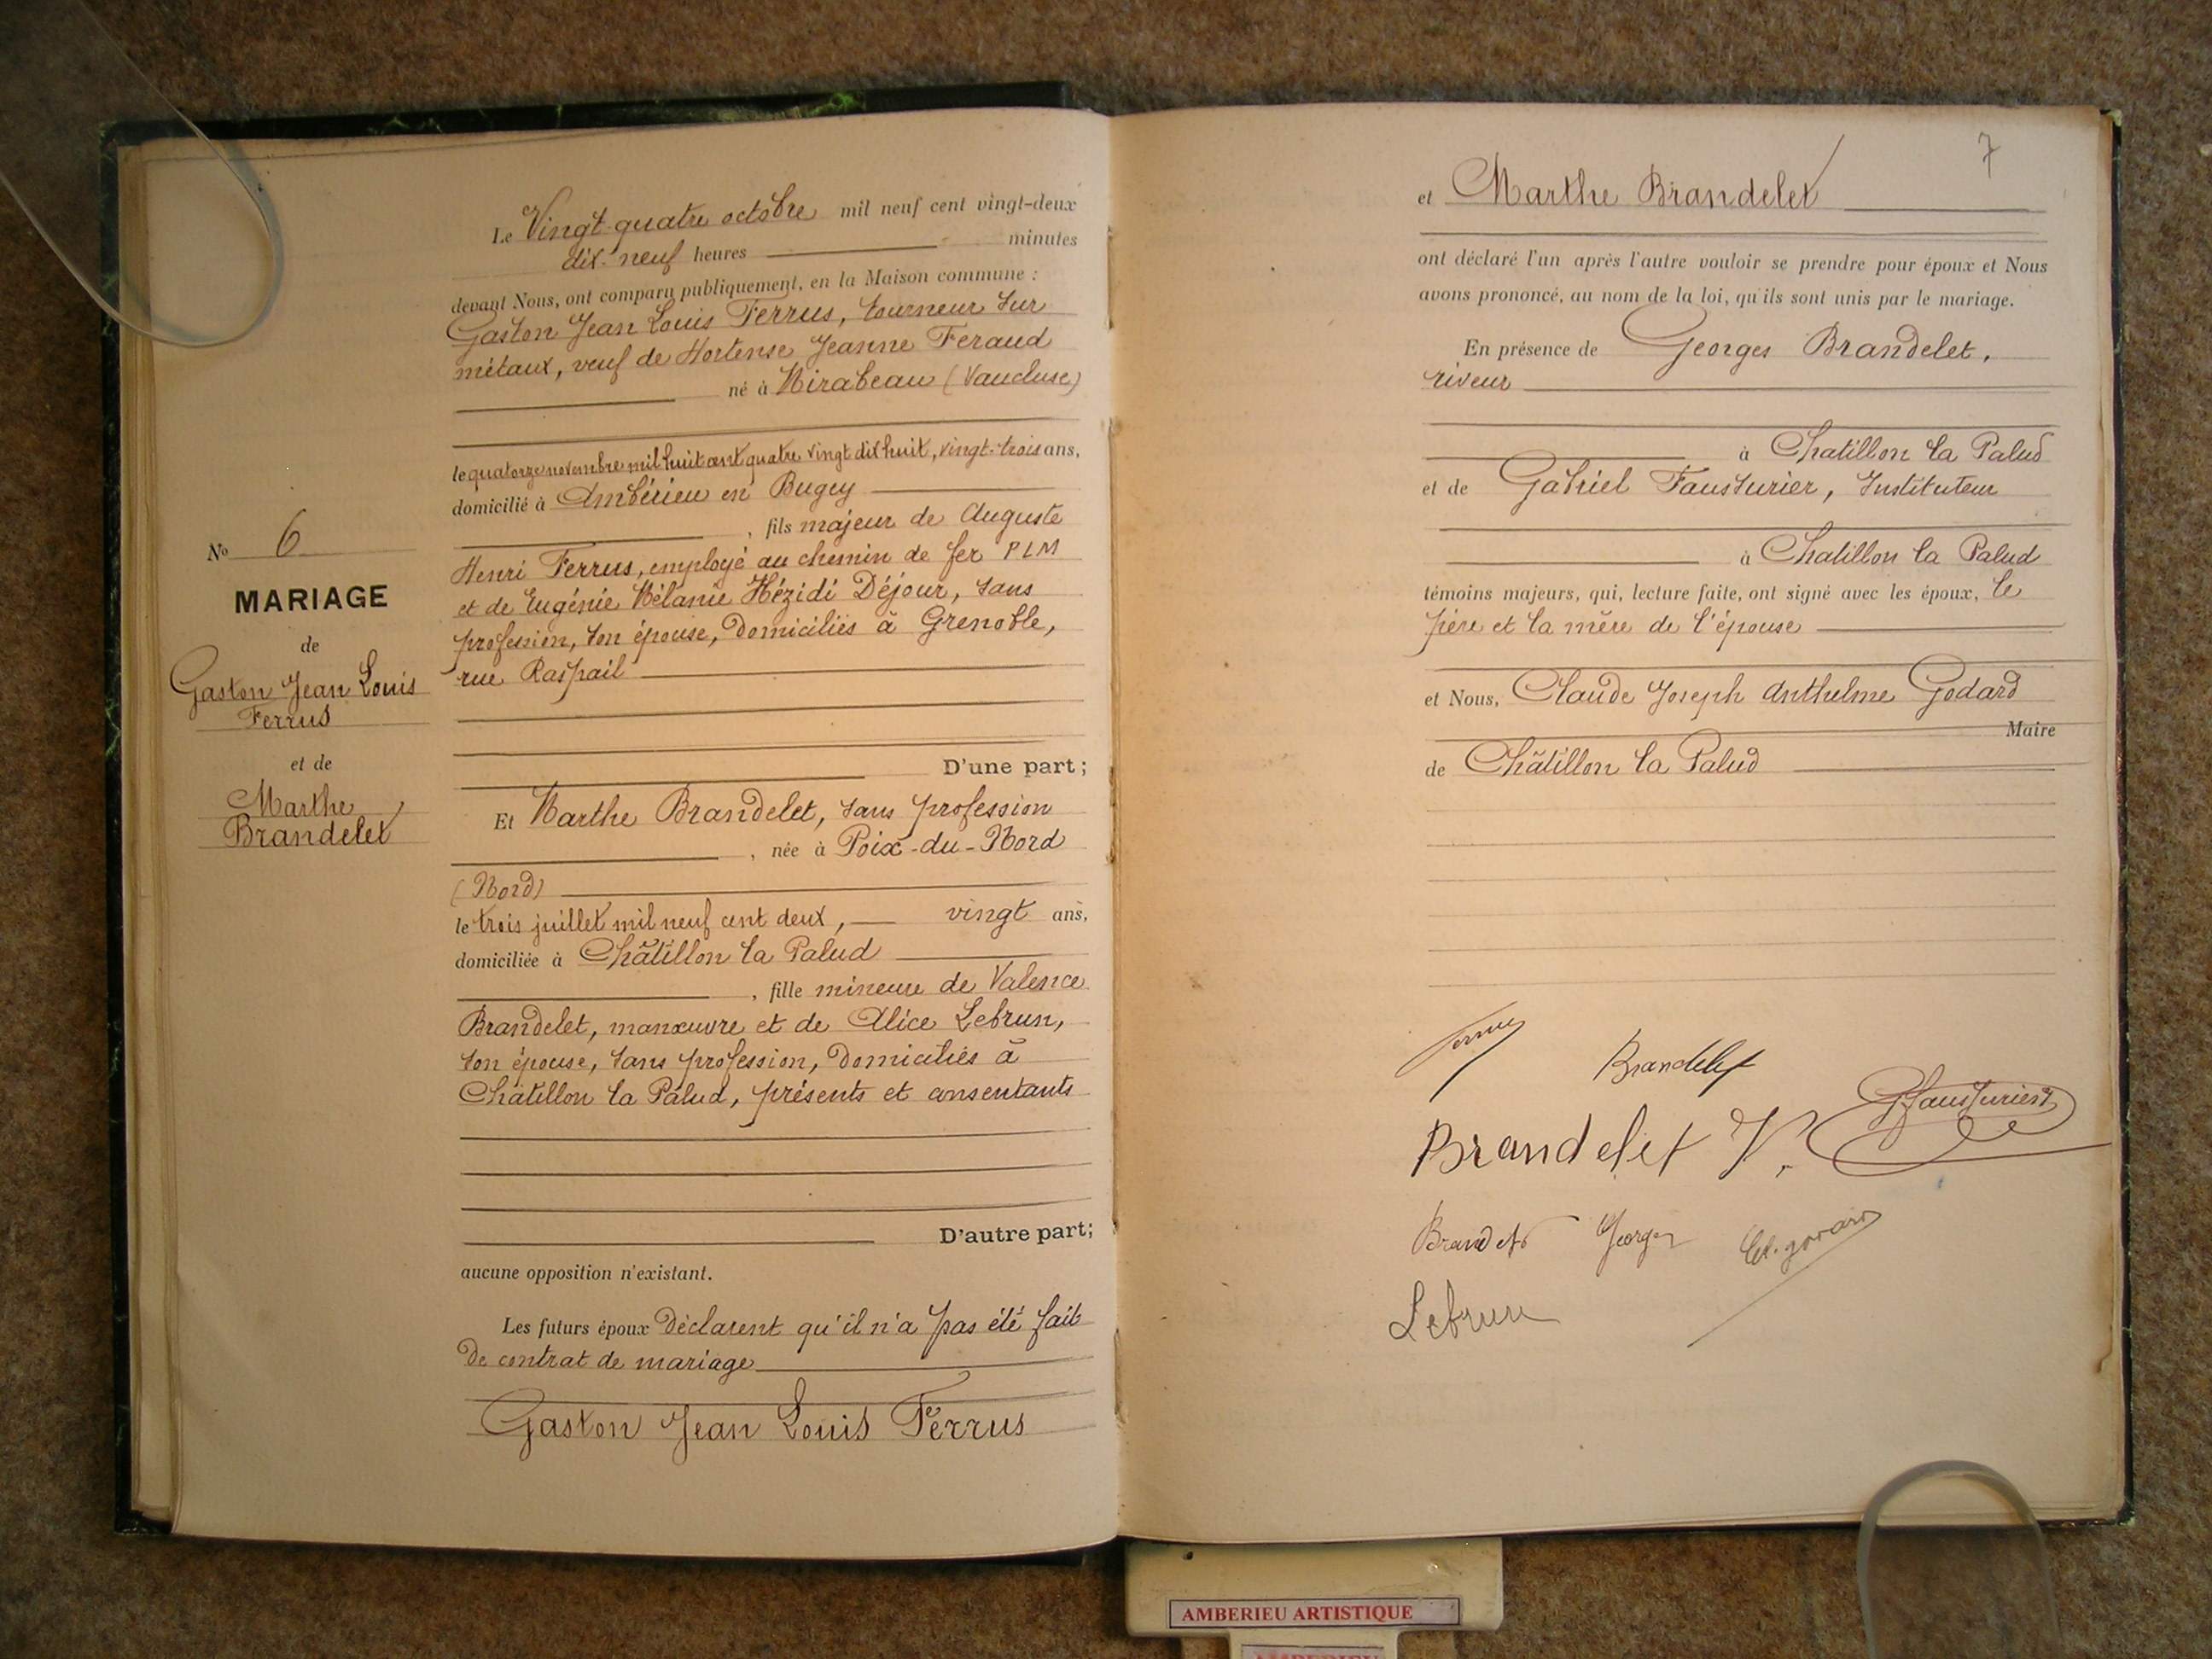 Le Vingt-quatre octobre mil neuf cent vingt-deux
dix-neuf heures minutes
devant Nous, ont comparu publiquement, en la Maison commune :
Gaston Jean Louis Ferrus, tourneur sur
métaux, veuf de Hortense Jeanne Feraud
né à Mirabeau (Vaucluse)
le quatorze novembre mil huit cent quatre vingt dix huit, vingt-trois ans,
domicilié à Ambérieu en Bugey
, fils majeur de Auguste
Henri Ferrus, employé au chemin de fer PLM
et de Eugénie Mélanie Hézidi Déjour, sans
profession, son épouse, domiciliés à Grenoble,
rue Raspail
D'une part ;
No 6
MARIAGE
de
Gaston Jean Louis
Ferrus
et de
Marthe
Brandelet
Et Marthe Brandelet, sans profession
, née à Poix-du-Nord
(Nord)
le trois juillet mil neuf cent deux, vingt ans,
domiciliée à Châtillon la Palud
, fille mineure de Valence
Brandelet, manœuvre et de Alice Lebrun,
son épouse, sans profession, domiciliés à
Châtillon la Palud, présents et consentants
D'autre part;
aucune opposition n'existant.
Les futurs époux déclarent qu'il n'a pas été fait
de contrat de mariage
Gaston Jean Louis Ferrus
7
et Marthe Brandelet
ont déclaré l'un après l'autre vouloir se prendre pour époux et Nous
avons prononcé, au nom de la loi, qu'ils sont unis par le mariage.
En présence de Georges Brandelet,
riveur
à Chatillon la Palud
et de Gabriel Fausturier, Instituteur
à Chatillon la Palud
témoins majeurs, qui, lecture faite, ont signé avec les époux, le
père et la mère de l'épouse
et Nous, Claude Joseph Anthelme Godard
Maire
de Châtillon la Palud
Brandelet
GFausturier
Brandelet V.
Brandelet Georges
Lebrun
AMBERIEU ARTISTIQUE